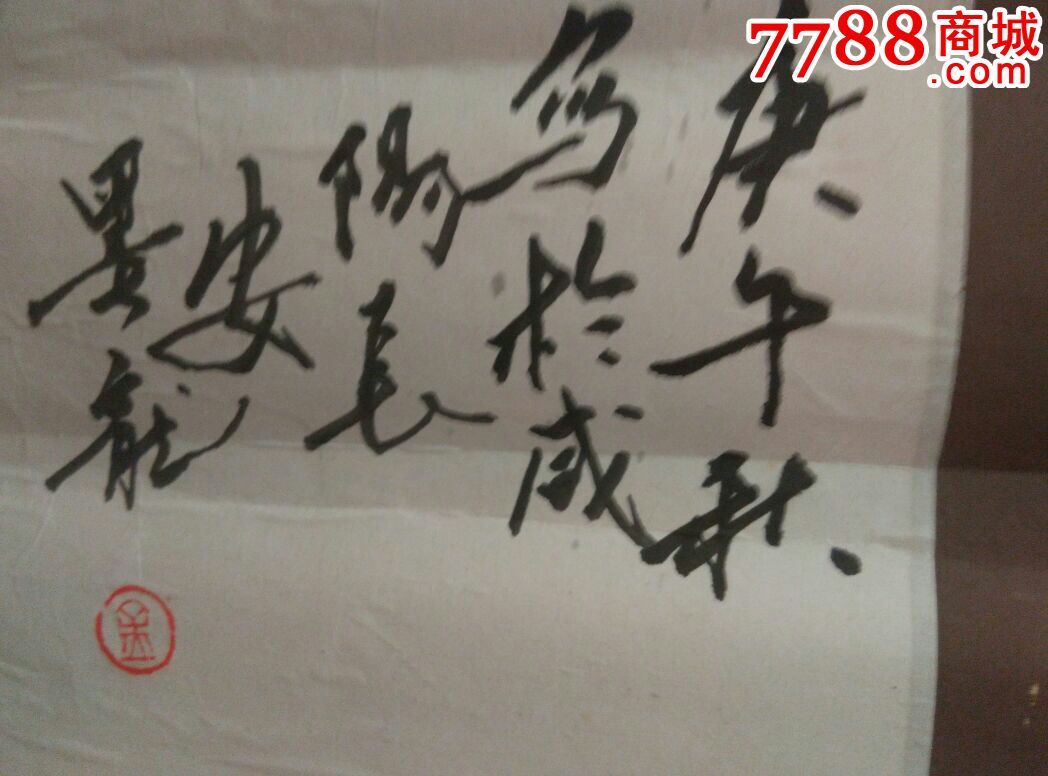 庚午秋
写於咸
陽長
安
墨龍
7788商城
.com